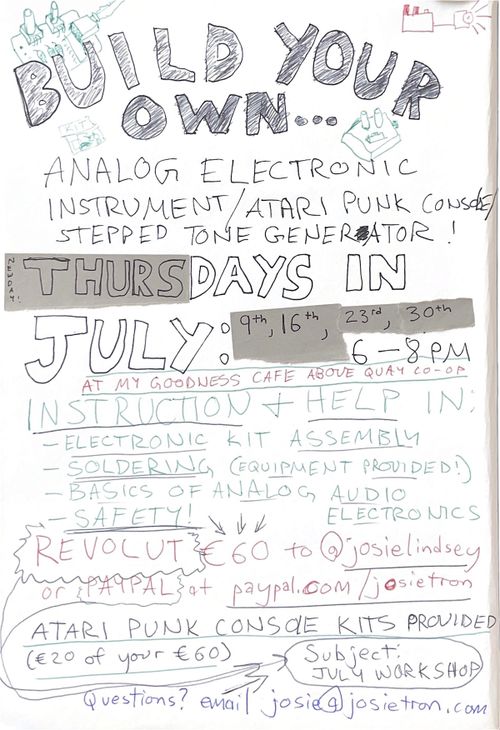 BUILD YOUR
OWN...
KITS
ANALOG ELECTRONIC
INSTRUMENT/ATARI PUNK CONSOLE/
STEPPED TONE GENERATOR!
NEW DAY!
THURSDAYS IN
JULY: 9th, 16th, 23rd, 30th
6-8PM
AT MY GOODNESS CAFE ABOVE QUAY CO-OP
INSTRUCTION + HELP IN:
- ELECTRONIC KIT ASSEMBLY
- SOLDERING (EQUIPMENT PROVIDED!)
- BASICS OF ANALOG AUDIO
ELECTRONICS
- SAFETY!
REVOLUT €60 to @josielindsey
or PAYPAL at paypal.com/josietron
ATARI PUNK CONSOLE KITS PROVIDED
(€20 of your €60)
Subject:
JULY WORKSHOP
Questions? email josie@josietron.com